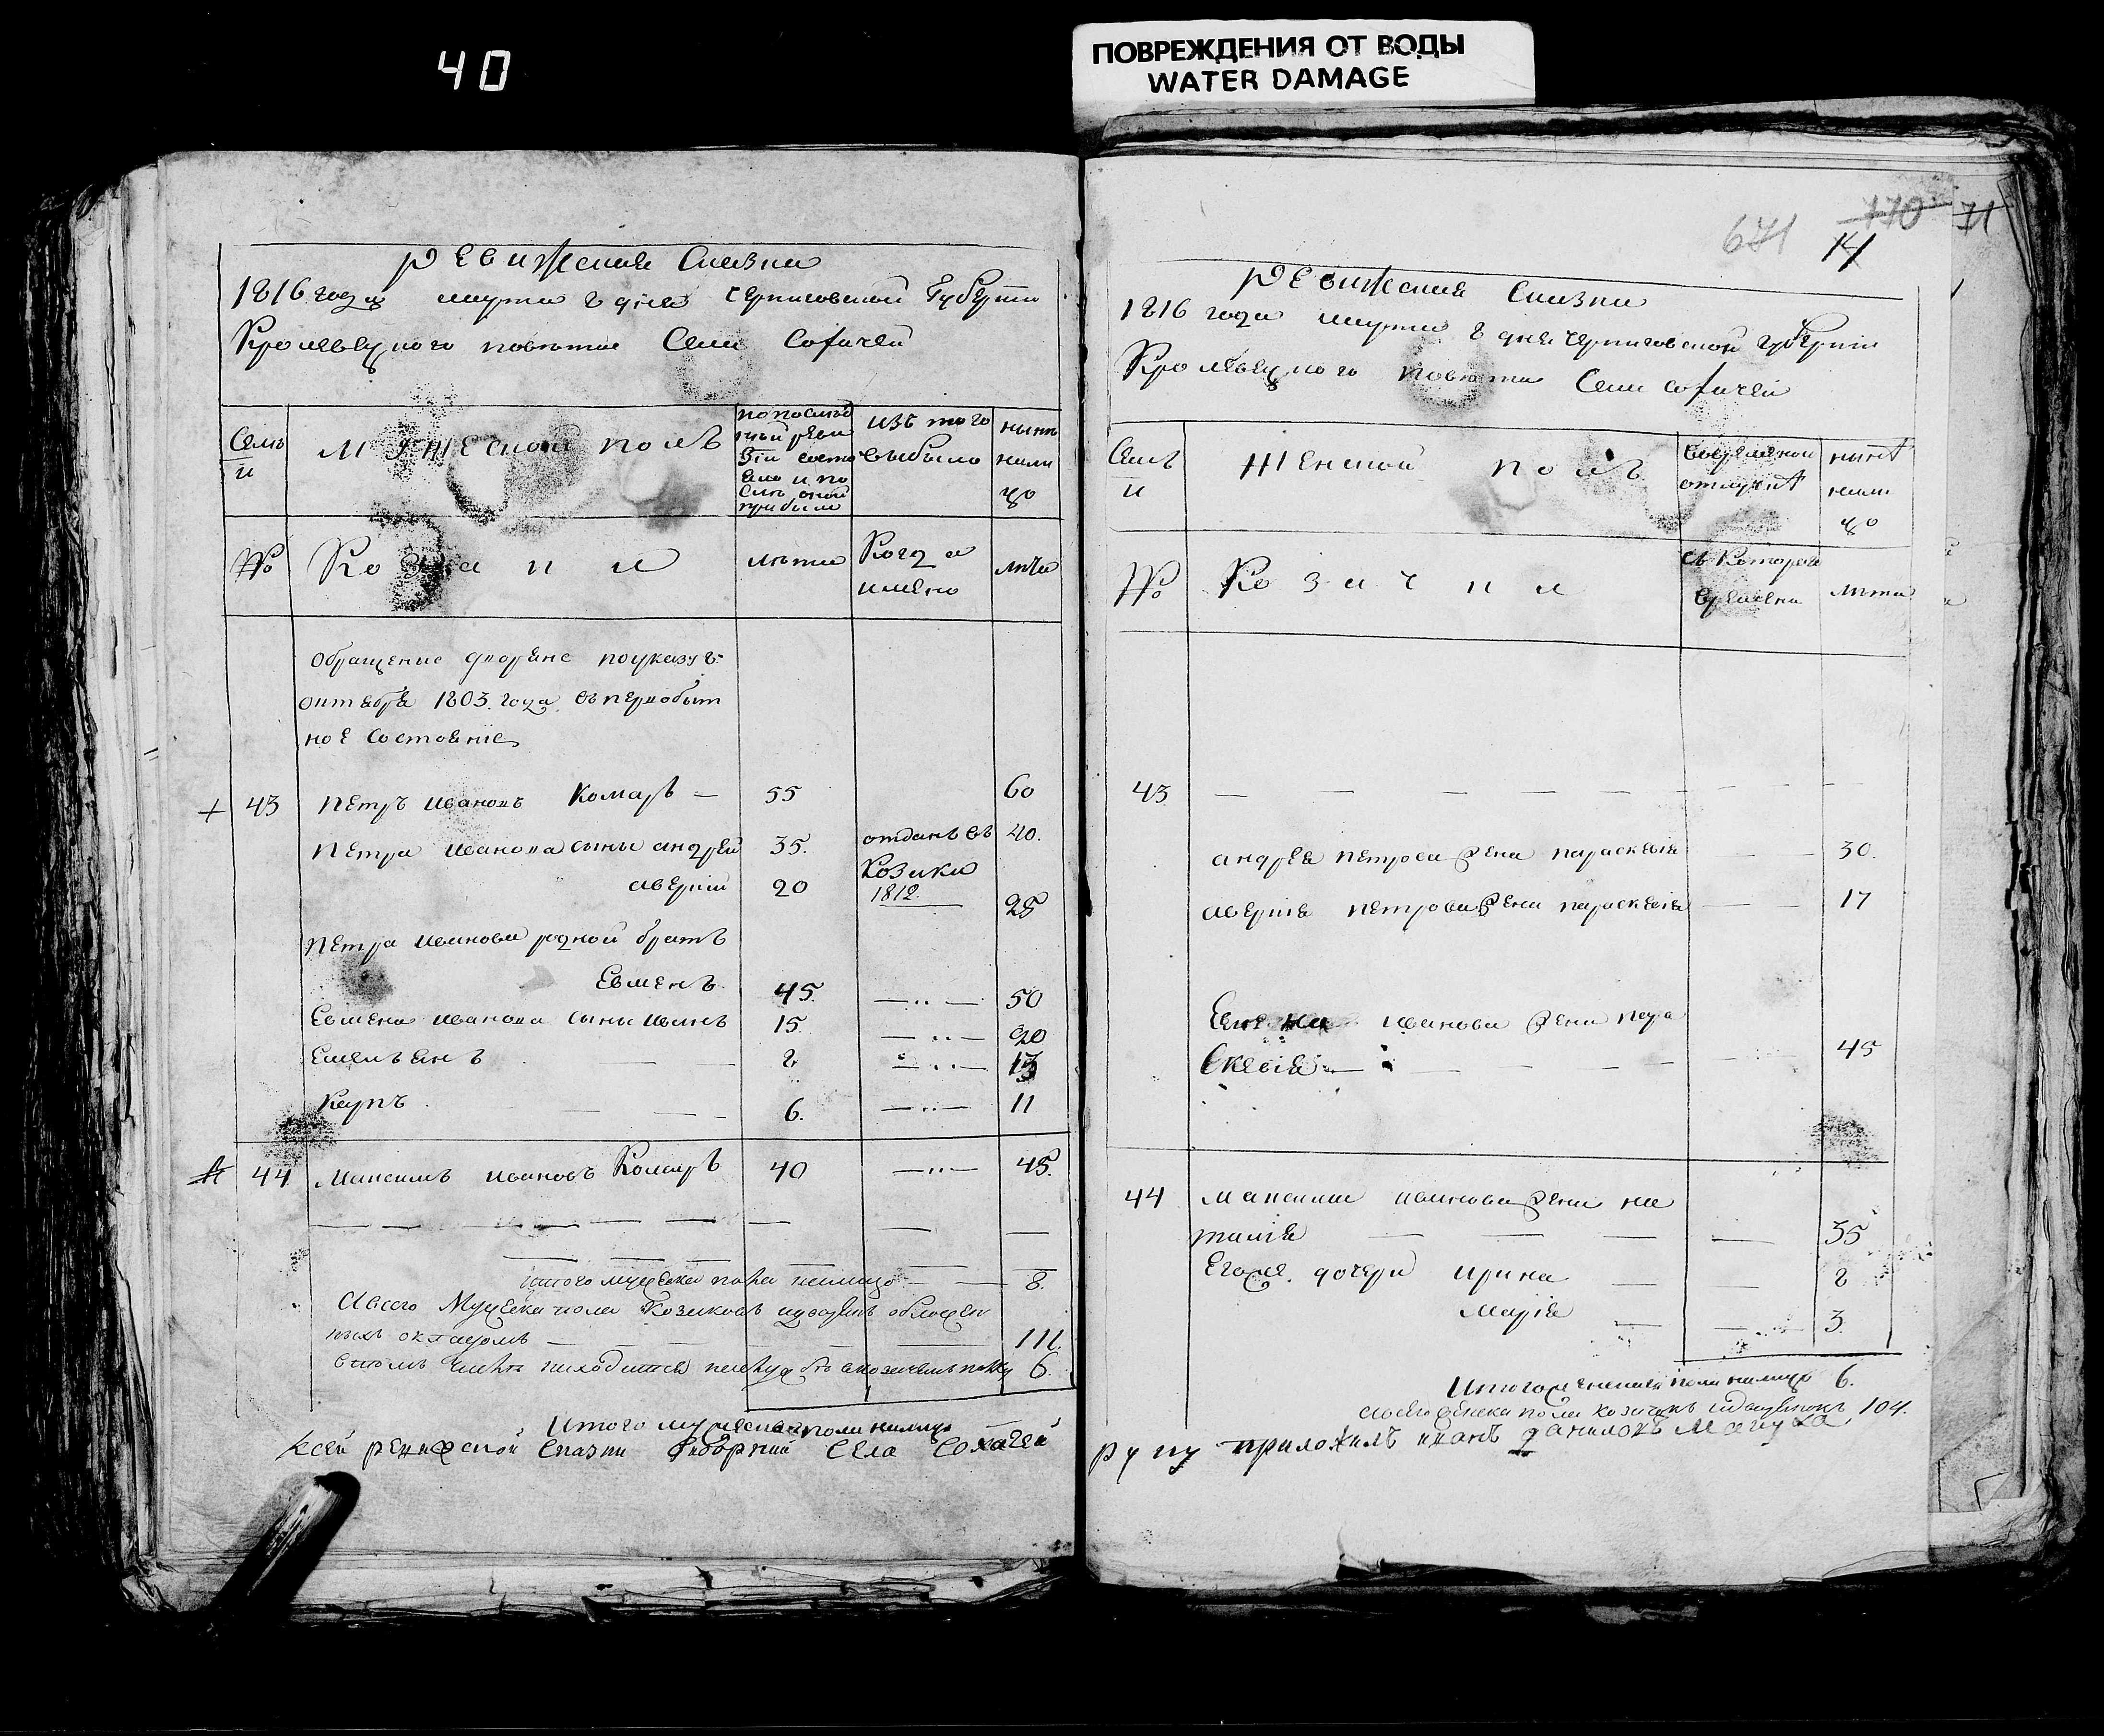 40
ПОВРЕЖДЕНИЯ ОТ ВОДЫ
WATER DAMAGE
Ревижская Сказка
1816 года марта 8 дня Черниговской Губернии
Кролевецкого повета Села Сохачей
Семьи
Мужеской полъ
по последней ревизіи состояло и после оной прибыло
изъ того выбыло
ныне налицо
№
Козаки
лета
Когда имено
лета
обращение дворяне поуказу 6
октября 1803. года въ первобыт
ное состоянiе
43 Петръ Ивановъ Комаръ — 55 60
Петра Иванова сыны андрей 35. отданъ въ Козаки 1812. 40.
аверкий 20 25
Петра Иванова родной братъ
Евменъ 45. 50
Евмена Иванова сыны Иванъ 15. 20
Емельянъ 8 13
Карпъ 6. 11
44 Максимъ Ивановъ Комаръ 40 45.
итого мужеска пола налицо 8.
Авсего Мужеска пола Козаковъ
ныхъ окладомъ — 111.
втомъ числе находится 6.
Итого мужеска пола налицо
Ксей ревижской Сказки выборний Села Сохачей
671 170 71
14
Ревижская Сказка
1816 года марта 8 дня Черниговской губернии
Кролевецкого повета Села Сохачей
Семьи
Женской полъ
Вовременной отлучке
ныне налицо
№
Козачки
съ Которого времени
лета
43
андрея Петрова жена параскевия 30.
аверкия Петрова жена параскевия 17
Евмена Иванова жена пара
скевия 45
44 Максима Иванова жена на
талия 35
Егоже дочери Ирина 8
Мария 3.
Итого женска пола налицо 6.
авсего женска пола козачекъ 104.
руку приложилъ иванъ даниловъ